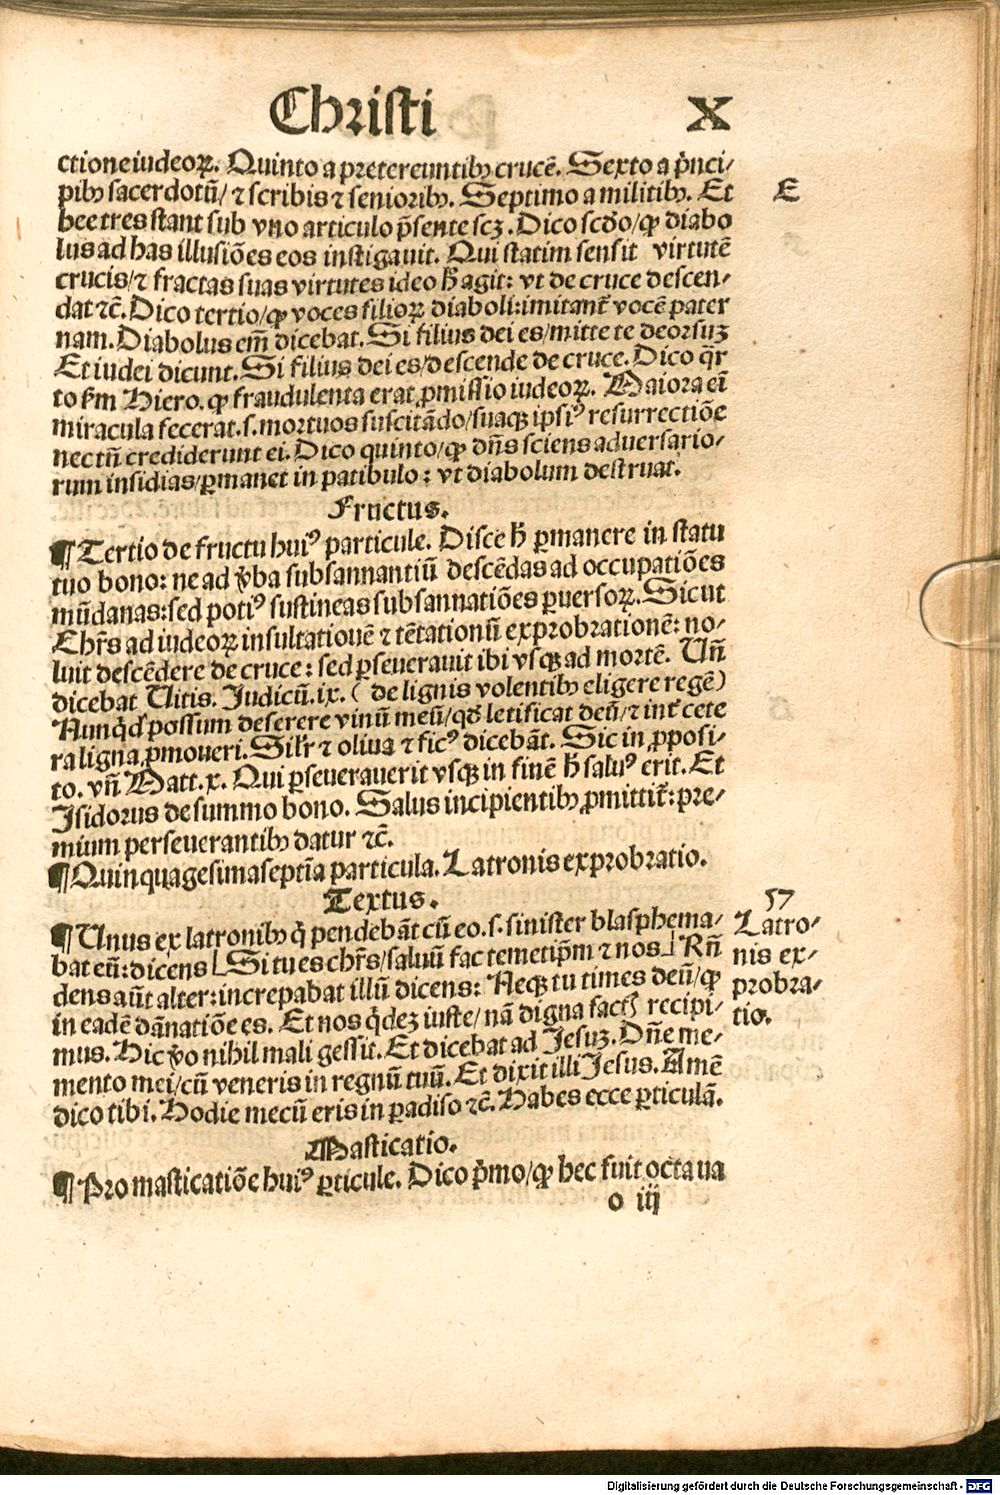 Christi X
ctione iudeoꝝ. Quinto a pretereuntibꝰ crucē. Sexto a p̄nci⸗
pibꝰ sacerdotū/ ⁊ scribis ⁊ senioribꝰ. Septimo a militibꝰ. Et
E
hee tres stant sub vno articulo p̄sente scꝫ. Dico scd̄o/ ꝙ diabo
lus ad has illusiōes eos instigauit. Qui statim sensit virtutē
crucis/ ⁊ fractas suas virtutes ideo h̄ agit: vt de cruce descen⸗
dat ⁊c̄. Dico tertio/ ꝙ voces filioꝝ diaboli: imitant᷑ vocē pater
nam. Diabolus em̄ dicebat. Si filius dei es/ mitte te deorsuꝫ
Et iudei dicunt. Si filius dei es/ descende de cruce. Dico q̄r
to ẜm Hiero. ꝙ fraudulenta erat ꝓmissio iudeoꝝ. Maiora ei̅
miracula fecerat. s. mortuos suscitādo/ suaqꝫ ipsiꝰ resurrectiōe
nec tn̄ crediderunt ei. Dico quinto/ ꝙ dn̄s sciens aduersario⸗
rum insidias/ ꝑmanet in patibulo: vt diabolum destruat.
Fructus.
¶ Tertio de fructu huiꝰ particule. Disce h̄ ꝑmanere in statu
tuo bono: ne ad v̄ba subsannantiū descēdas ad occupatiōes
mūdanas: sed potiꝰ sustineas subsannatiōes ꝑuersoꝝ. Sicut
Chr̄s ad iudeoꝝ insultationē ⁊ tētationū exprobrationē: no⸗
luit descēdere de cruce: sed ꝑseuerauit ibi vsqꝫ ad mortē. Un̄
dicebat Uitis. Judicū. ix. ( de lignis volentibꝰ eligere regē)
Nunq̄d possum deserere vinū meū/ qd̄ letificat deū/ ⁊ int᷑ cete
ra ligna ꝓmoueri. Silr̄ ⁊ oliua ⁊ ficꝰ dicebāt. Sic in ꝓposi⸗
to. vn̄ Matt. x. Qui ꝑseuerauerit vsqꝫ in finē h̄ saluꝰ erit. Et
Isidorus de summo bono. Salus incipientibꝰ ꝓmittit᷑: pre⸗
mium perseuerantibꝰ datur ⁊c̄.
¶ Quinquagesimaseptīa particula. Latronis exprobratio.
Textus.
57
Latro⸗
nis ex⸗
probra⸗
tio.
¶ Unus ex latronibꝰ q̄ pendebāt cū eo. s. sinister blasphema⸗
bat eū: dicens Si tu es chr̄s/ saluū fac temetip̄m ⁊ nos Rn̄
dens aūt alter: increpabat illū dicens: Neqꝫ tu times deū/ ꝙ
in eadē dānatiōe es. Et nos q̄deꝫ iuste/ nā digna fact̄ recipi⸗
mus. Hic v̄o nihil mali gessit. Et dicebat ad Jesuꝫ. Dn̄e me⸗
mento mei/ cū veneris in regnū tuū. Et dixit illi Jesus. Amē
dico tibi. Hodie mecū eris in ꝑadiso ⁊c̄. Habes ecce ꝑticulā.
Masticatio.
¶ Pro masticatiōe huiꝰ ꝑticule. Dico p̄mo/ ꝙ hec fuit octaua
o iij
Digitalisierung gefördert durch die Deutsche Forschungsgemeinschaft - DFG